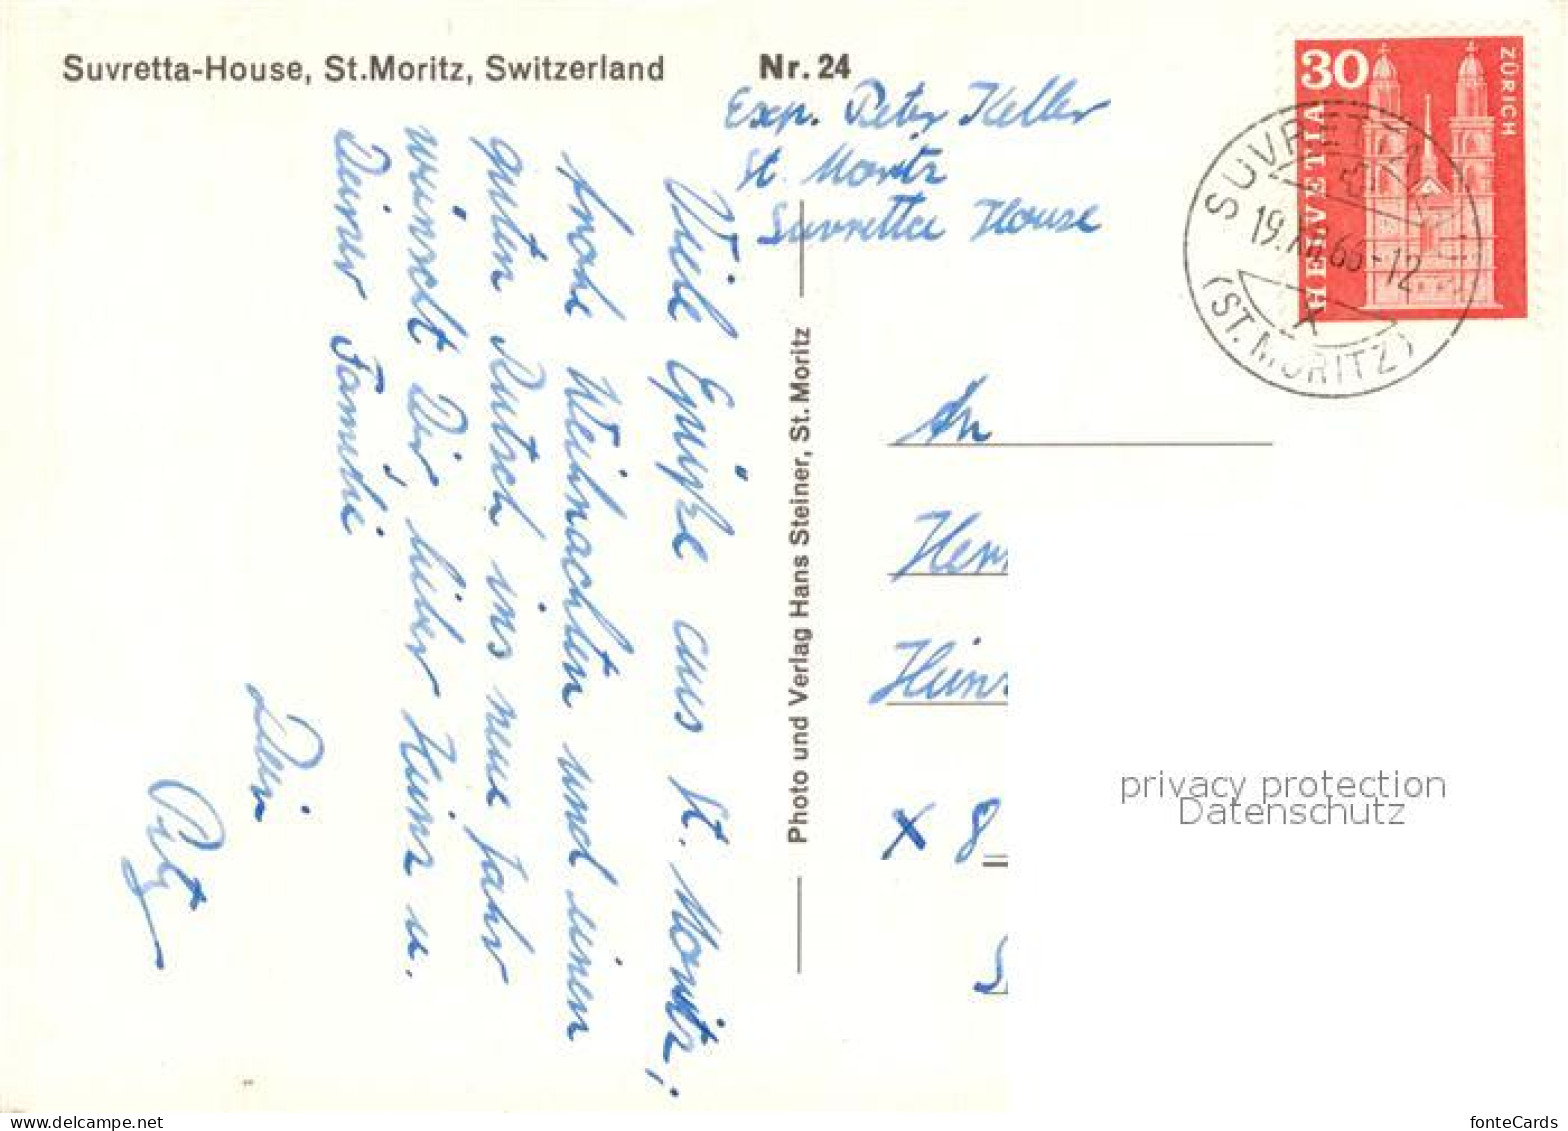 Suvretta-House, St.Moritz, Switzerland
Nr. 24
Exp. Peter Keller
St. Moritz
Suvretta House
30
HELVETIA
ZÜRICH
SUVRETTA
-12
(ST. MORITZ)
Viele Grüße aus St. Moritz,
frohe Weihnachten und einen
guten Rutsch ins neue Jahr
wünscht Dir, lieber Heinz u.
Deiner Familie
Dein
Peter
Photo und Verlag Hans Steiner, St. Moritz
An
Herr
Heinz
X 8
privacy protection
Datenschutz
fonteCards
www.delcampe.net